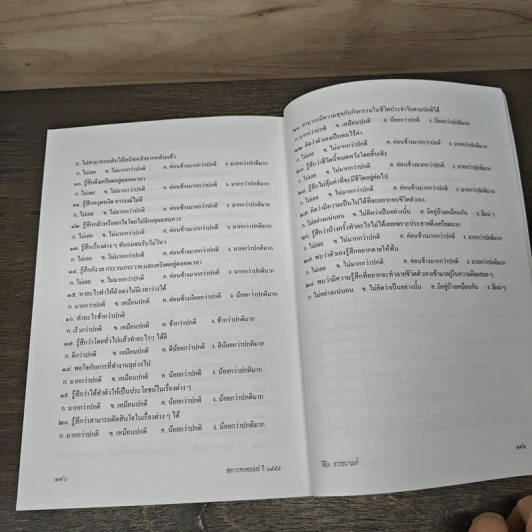 ๙. ไม่สามารถหลับได้สนิทหลังจากหลับแล้ว
ก. ไม่เลย ข. ไม่มากกว่าปกติ ค. ค่อนข้างมากกว่าปกติ ง. มากกว่าปกติมาก
๑๐. รู้สึกตึงเครียดอยู่ตลอดเวลา
ก. ไม่เลย ข. ไม่มากกว่าปกติ ค. ค่อนข้างมากกว่าปกติ ง. มากกว่าปกติมาก
๑๑. รู้สึกหงุดหงิด อารมณ์ไม่ดี
ก. ไม่เลย ข. ไม่มากกว่าปกติ ค. ค่อนข้างมากกว่าปกติ ง. มากกว่าปกติมาก
๑๒. รู้สึกกลัวหรือตกใจโดยไม่มีเหตุผลสมควร
ก. ไม่เลย ข. ไม่มากกว่าปกติ ค. ค่อนข้างมากกว่าปกติ ง. มากกว่าปกติมาก
๑๓. รู้สึกเรื่องต่าง ๆ ทับถมจนรับไม่ไหว
ก. ไม่เลย ข. ไม่มากกว่าปกติ ค. ค่อนข้างมากกว่าปกติ ง. มากกว่าปกติมาก
๑๔. รู้สึกกังวล กระวนกระวาย และเครียดอยู่ตลอดเวลา
ก. ไม่เลย ข. ไม่มากกว่าปกติ ค. ค่อนข้างมากกว่าปกติ ง. มากกว่าปกติมาก
๑๕. หาอะไรทำให้ตัวเองไม่มีเวลาว่างได้
ก. มากกว่าปกติ ข. เหมือนปกติ ค. ค่อนข้างน้อยกว่าปกติ ง. น้อยกว่าปกติมาก
๑๖. ทำอะไรช้ากว่าปกติ
ก. เร็วกว่าปกติ ข. เหมือนปกติ ค. ช้ากว่าปกติ ง. ช้ากว่าปกติมาก
๑๗. รู้สึกว่าโดยทั่วไปแล้วทำอะไรๆ ได้ดี
ก. ดีกว่าปกติ ข. เหมือนปกติ ค. ดีน้อยกว่าปกติ ง. ดีน้อยกว่าปกติมาก
๑๘. พอใจกับการที่ทำงานลุล่วงไป
ก. มากกว่าปกติ ข. เหมือนปกติ ค. น้อยกว่าปกติ ง. น้อยกว่าปกติมาก
๑๙. รู้สึกว่าได้ทำตัวให้เป็นประโยชน์ในเรื่องต่าง ๆ
ก. มากกว่าปกติ ข. เหมือนปกติ ค. น้อยกว่าปกติ ง. น้อยกว่าปกติมาก
๒๐. รู้สึกว่าสามารถตัดสินใจในเรื่องต่าง ๆ ได้
ก. มากกว่าปกติ ข. เหมือนปกติ ค. น้อยกว่าปกติ ง. น้อยกว่าปกติมาก
๒๑. สามารถมีความสุขกับกิจกรรมในชีวิตประจำวันตามปกติได้
ก. มากกว่าปกติ ข. เหมือนปกติ ค. น้อยกว่าปกติ ง. น้อยกว่าปกติมาก
๒๒. คิดว่าตัวเองเป็นคนไร้ค่า
ก. ไม่เลย ข. ไม่มากกว่าปกติ ค. ค่อนข้างมากกว่าปกติ ง. มากกว่าปกติมาก
๒๓. รู้สึกว่าชีวิตนี้หมดหวังโดยสิ้นเชิง
ก. ไม่เลย ข. ไม่มากกว่าปกติ ค. ค่อนข้างมากกว่าปกติ ง. มากกว่าปกติมาก
๒๔. รู้สึกไม่คุ้มค่าที่จะมีชีวิตอยู่ต่อไป
ก. ไม่เลย ข. ไม่มากกว่าปกติ ค. ค่อนข้างมากกว่าปกติ ง. มากกว่าปกติมาก
๒๕. คิดว่ามีความเป็นไปได้ที่จะอยากจบชีวิตตัวเอง
ก. ไม่อย่างแน่นอน ข. ไม่คิดว่าเป็นอย่างนั้น ค. มีอยู่บ้างเหมือนกัน ง. มีแน่ๆ
๒๖. รู้สึกว่าบ้างครั้งทำอะไรไม่ได้เลยเพราะประสาทตึงเครียดมาก
ก. ไม่เลย ข. ไม่มากกว่าปกติ ค. ค่อนข้างมากกว่าปกติ ง. มากกว่าปกติมาก
๒๗. พบว่าตัวเองรู้สึกอยากตายให้พ้น
ก. ไม่เลย ข. ไม่มากกว่าปกติ ค. ค่อนข้างมากกว่าปกติ ง. มากกว่าปกติมาก
๒๘. พบว่ามีความรู้สึกที่อยากจะทำลายชีวิตตัวเองเข้ามาอยู่ในความคิดเสมอ ๆ
ก. ไม่อย่างแน่นอน ข. ไม่คิดว่าเป็นอย่างนั้น ค. มีอยู่บ้างเหมือนกัน ง. มีแน่ๆ